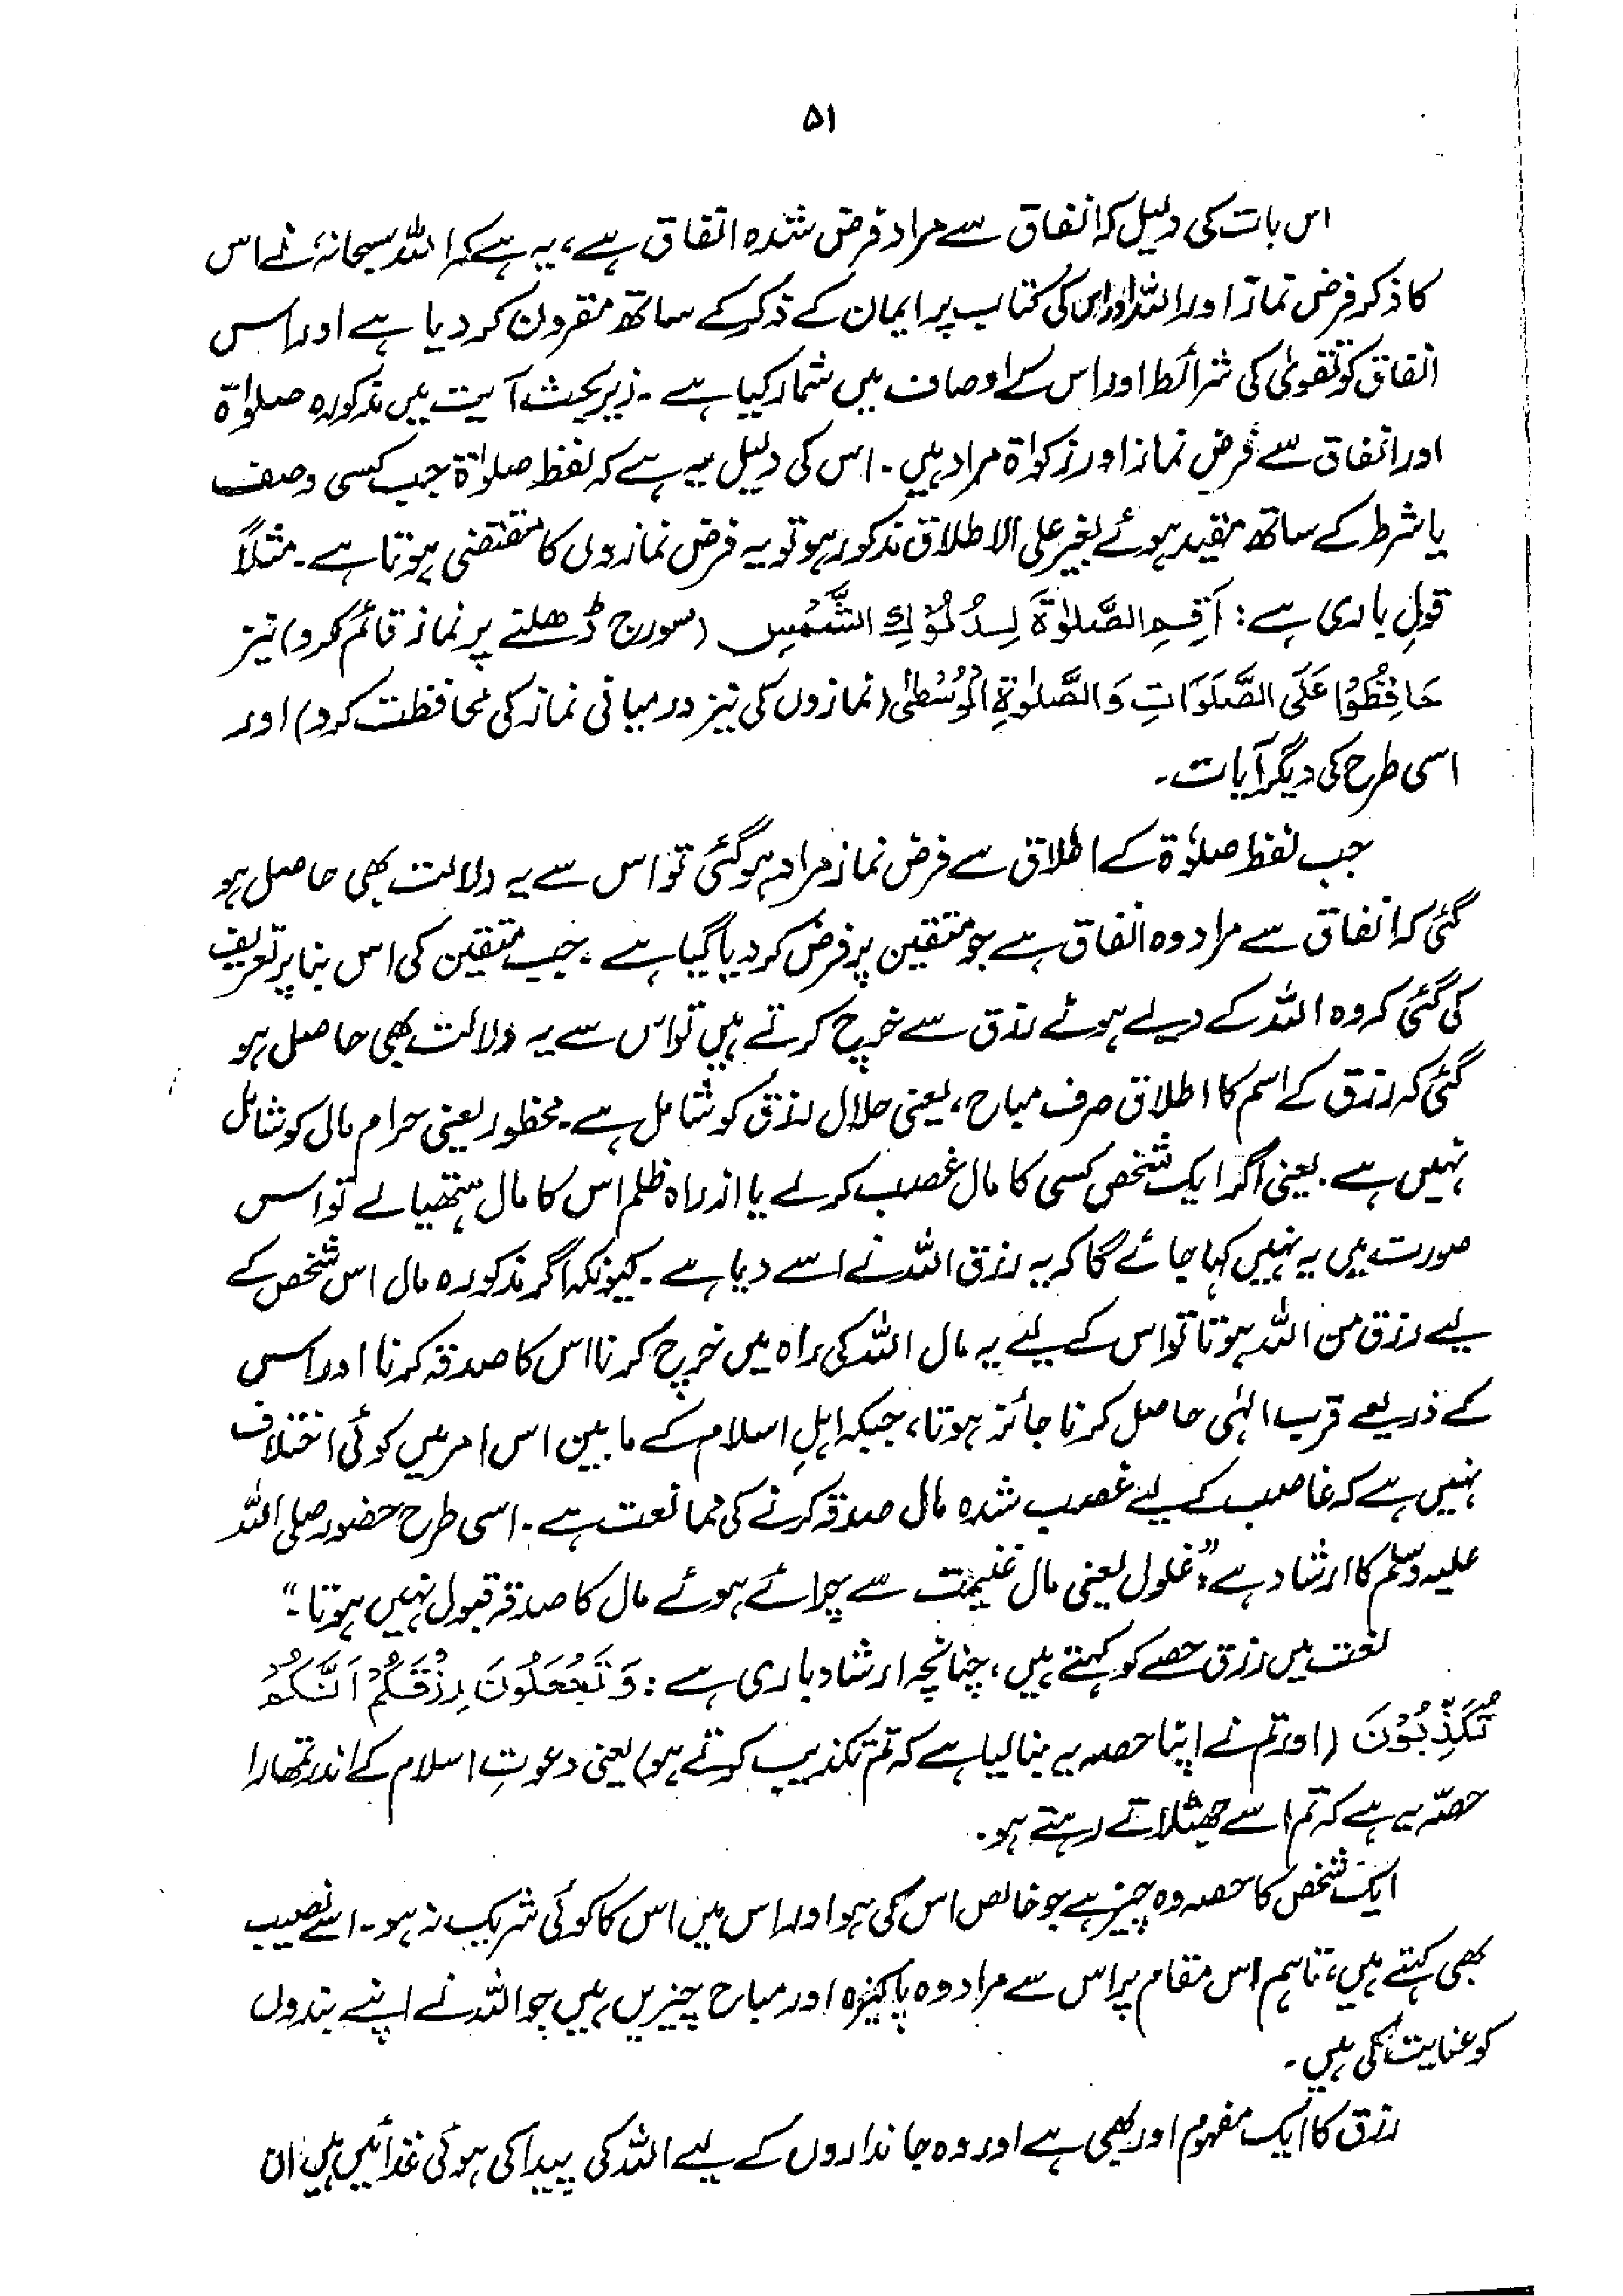 ۵۱
اس بات کی دلیل کہ انفاق سے مراد فرض شدہ انفاق ہے، یہ ہے کہ اللہ سبحانہٗ نے اس
کا ذکر فرض نماز اور اللہ اور اس کی کتاب پر ایمان کے ذکر کے ساتھ مقرون کر دیا ہے اور اس
انفاق کو تقویٰ کی شرائط اور اس کے اوصاف میں شمار کیا ہے۔ زیر بحث آیت میں مذکورہ صلوٰۃ
اور انفاق سے فرض نماز اور زکواۃ مراد ہیں۔ اس کی دلیل یہ ہے کہ لفظ صلوٰۃ جب کسی وصف
یا شرط کے ساتھ مقید ہوئے بغیر علی الاطلاق مذکور ہو تو یہ فرض نمازوں کا مقتضی ہوتا ہے۔ مثلاً
قولِ باری ہے: اَقِمِ الصَّلوٰۃَ لِدُلُوْكِ الشَّمْسِ (سورج ڈھلنے پر نماز قائم کرو) نیز
حَافِظُوْا عَلَى الصَّلَوَاتِ وَالصَّلوٰةِ الْوُسْطٰى (نمازوں کی نیز درمیانی نماز کی محافظت کرو) اور
اسی طرح کی دیگر آیات۔
جب لفظ صلوٰۃ کے اطلاق سے فرض نماز مراد ہو گئی تو اس سے یہ دلالت بھی حاصل ہو
گئی کہ انفاق سے مراد وہ انفاق ہے جو متقین پر فرض کر دیا گیا ہے۔ جب متقین کی اس بنا پر تعریف
کی گئی کہ وہ اللہ کے دیے ہوئے رزق سے خرچ کرتے ہیں تو اس سے یہ دلالت بھی حاصل ہو
گئی کہ رزق کے اسم کا اطلاق صرف مباح، یعنی حلال رزق کو شامل ہے۔ محظور یعنی حرام مال کو شامل
نہیں ہے۔ یعنی اگر ایک شخص کسی کا مال غصب کر لے یا ازراہ ظلم اس کا مال ہتھیا لے تو اس
صورت میں یہ نہیں کہا جائے گا کہ یہ رزق اللہ نے اسے دیا ہے۔ کیونکہ اگر مذکورہ مال اس شخص کے
لیے رزق من اللہ ہوتا تو اس کے لیے یہ مال اللہ کی راہ میں خرچ کرنا اس کا صدقہ کرنا اور اس
کے ذریعے قرب الٰہی حاصل کرنا جائز ہوتا، جبکہ اہلِ اسلام کے مابین اس امر میں کوئی اختلاف
نہیں ہے کہ غاصب کے لیے غصب شدہ مال صدقہ کرنے کی ممانعت ہے۔ اسی طرح حضور صلی اللہ
علیہ وسلم کا ارشاد ہے "غلول یعنی مال غنیمت سے چرائے ہوئے مال کا صدقہ قبول نہیں ہوتا۔"
لغت میں رزق حصے کو کہتے ہیں، چنانچہ ارشاد باری ہے: وَ تَجْعَلُوْنَ رِزْقَكُمْ اَنَّكُمْ
تُكَذِّبُوْنَ (اور تم نے اپنا حصہ یہ بنا لیا ہے کہ تم تکذیب کرتے ہو) یعنی دعوتِ اسلام کے اندر تمھارا
حصّہ یہ ہے کہ تم اسے جھٹلاتے رہتے ہو۔
ایک شخص کا حصہ وہ چیز ہے جو خالص اس کی ہو اور اس میں اس کا کوئی شریک نہ ہو۔ اسے نصیب
بھی کہتے ہیں، تاہم اس مقام پر اس سے مراد وہ پاکیزہ اور مباح چیزیں ہیں جو اللہ نے اپنے بندوں
کو عنایت کی ہیں۔
رزق کا ایک مفہوم اور بھی ہے اور وہ جانداروں کے لیے اللہ کی پیدا کی ہوئی غذائیں ہیں ان